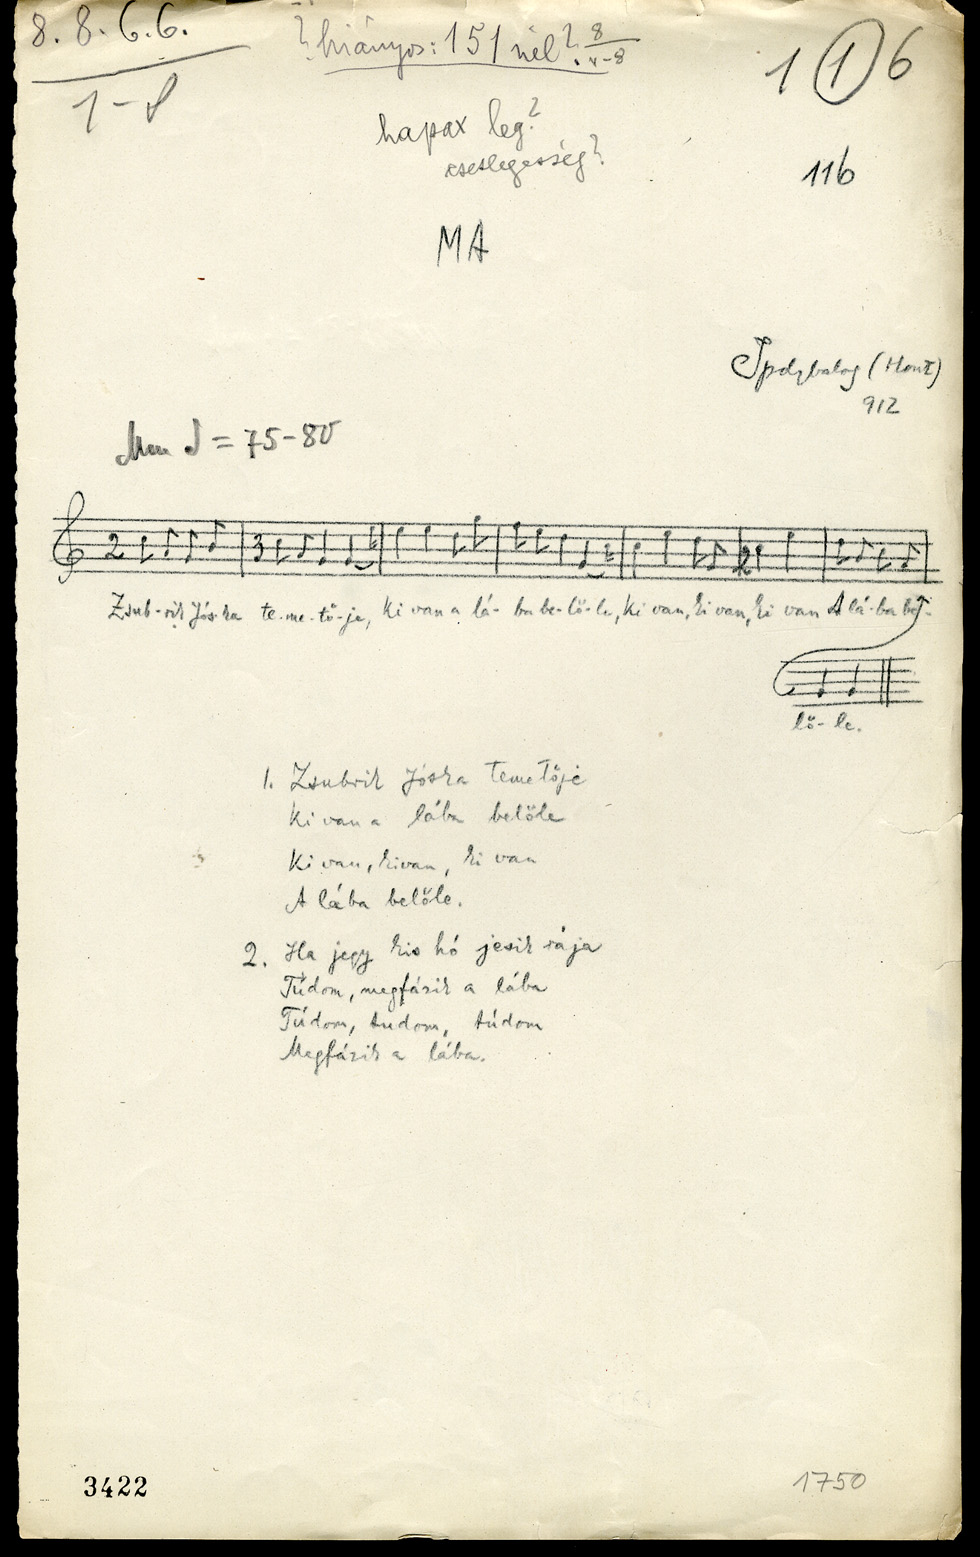 8. 8. 6. 6.
hiányos: 151 nél? 8
1 1 6
hapax leg?
esetlegesség?
116
MA
Ipolybalog (Hont)
912
= 75-80
2 3 2
Zsub-rik Jós-ka te-me-tő-je, ki van a lá-ba be-lő-le, ki van, ki van, ki van A lá-ba be-
lő-le.
1. Zsubrik Jóska temetője
Ki van a lába belőle
Ki van, kivan, ki van
A lába belőle.
2. Ha jegy kis hó jesik rája
Túdom, megfázik a lába
Túdom, tudom, túdom
Megfázik a lába.
3422
1750